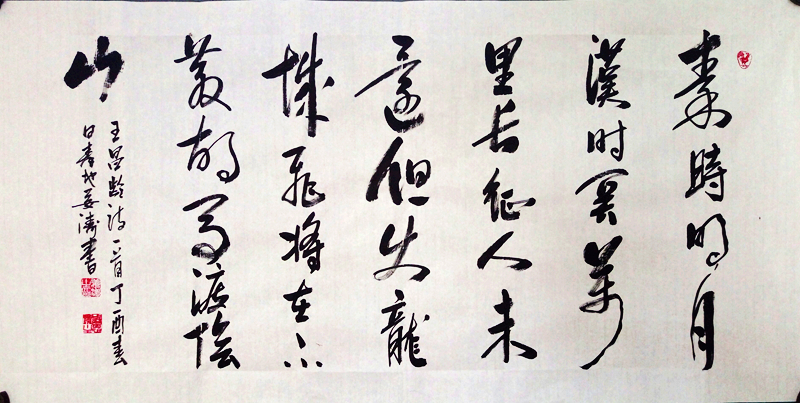 秦時明月
漢时関萬
里长征人未
還但使龍
城飛将在不
教胡馬渡陰
山
王昌齡诗一首丁酉春
日濤書